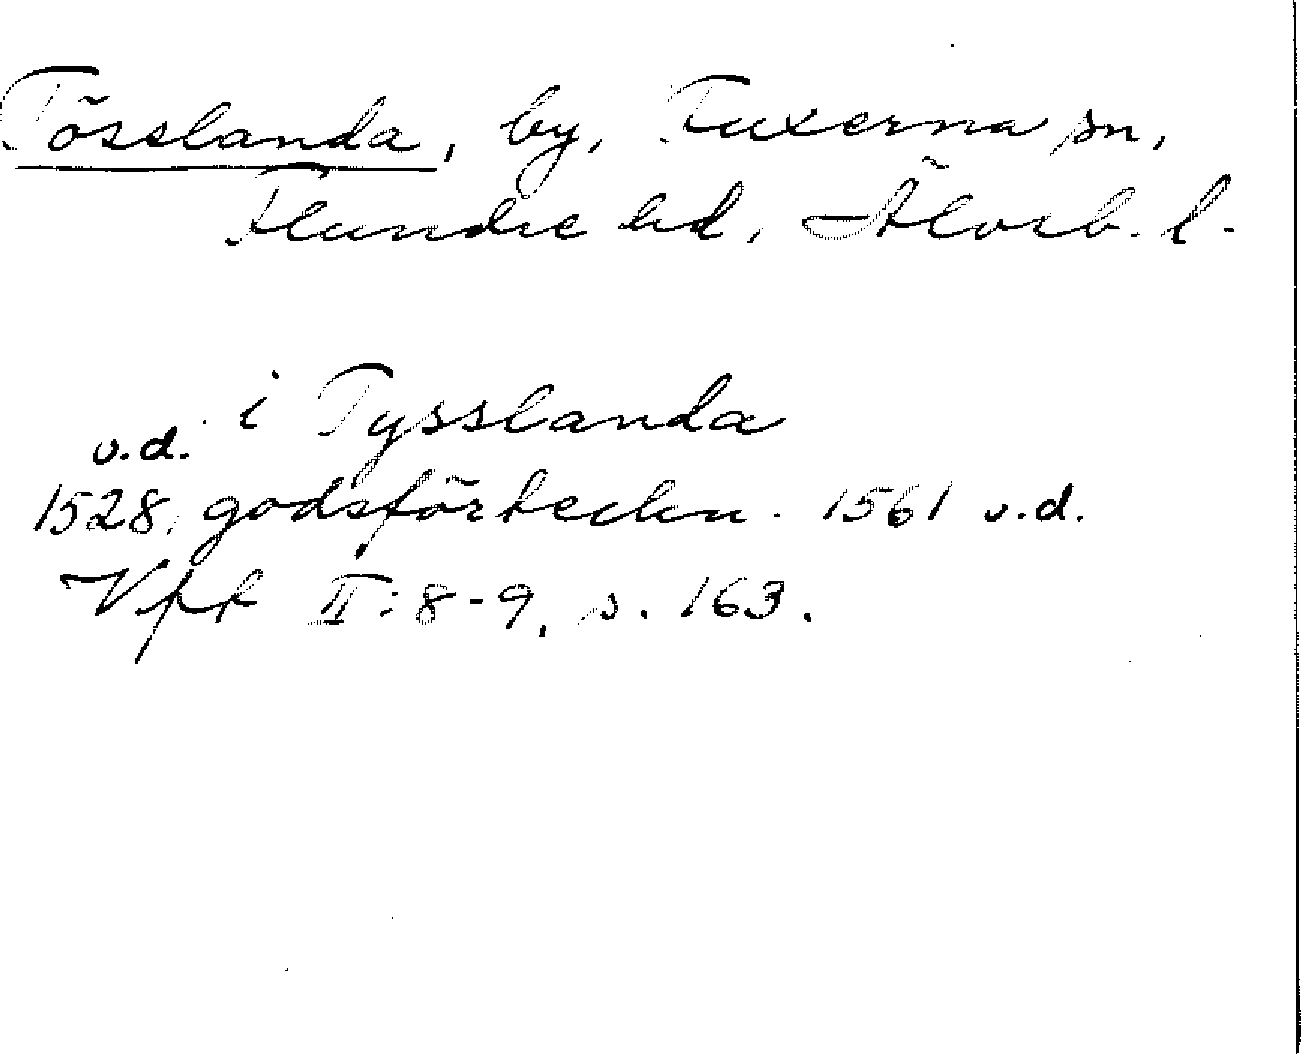 Tösslanda, by, Fuxerna sn,
Flundre hd, Älvsb. l.
i Tysslanda
v.d.
1528, godsförteckn. 1561 v.d.
Vff II:8-9, s. 163.